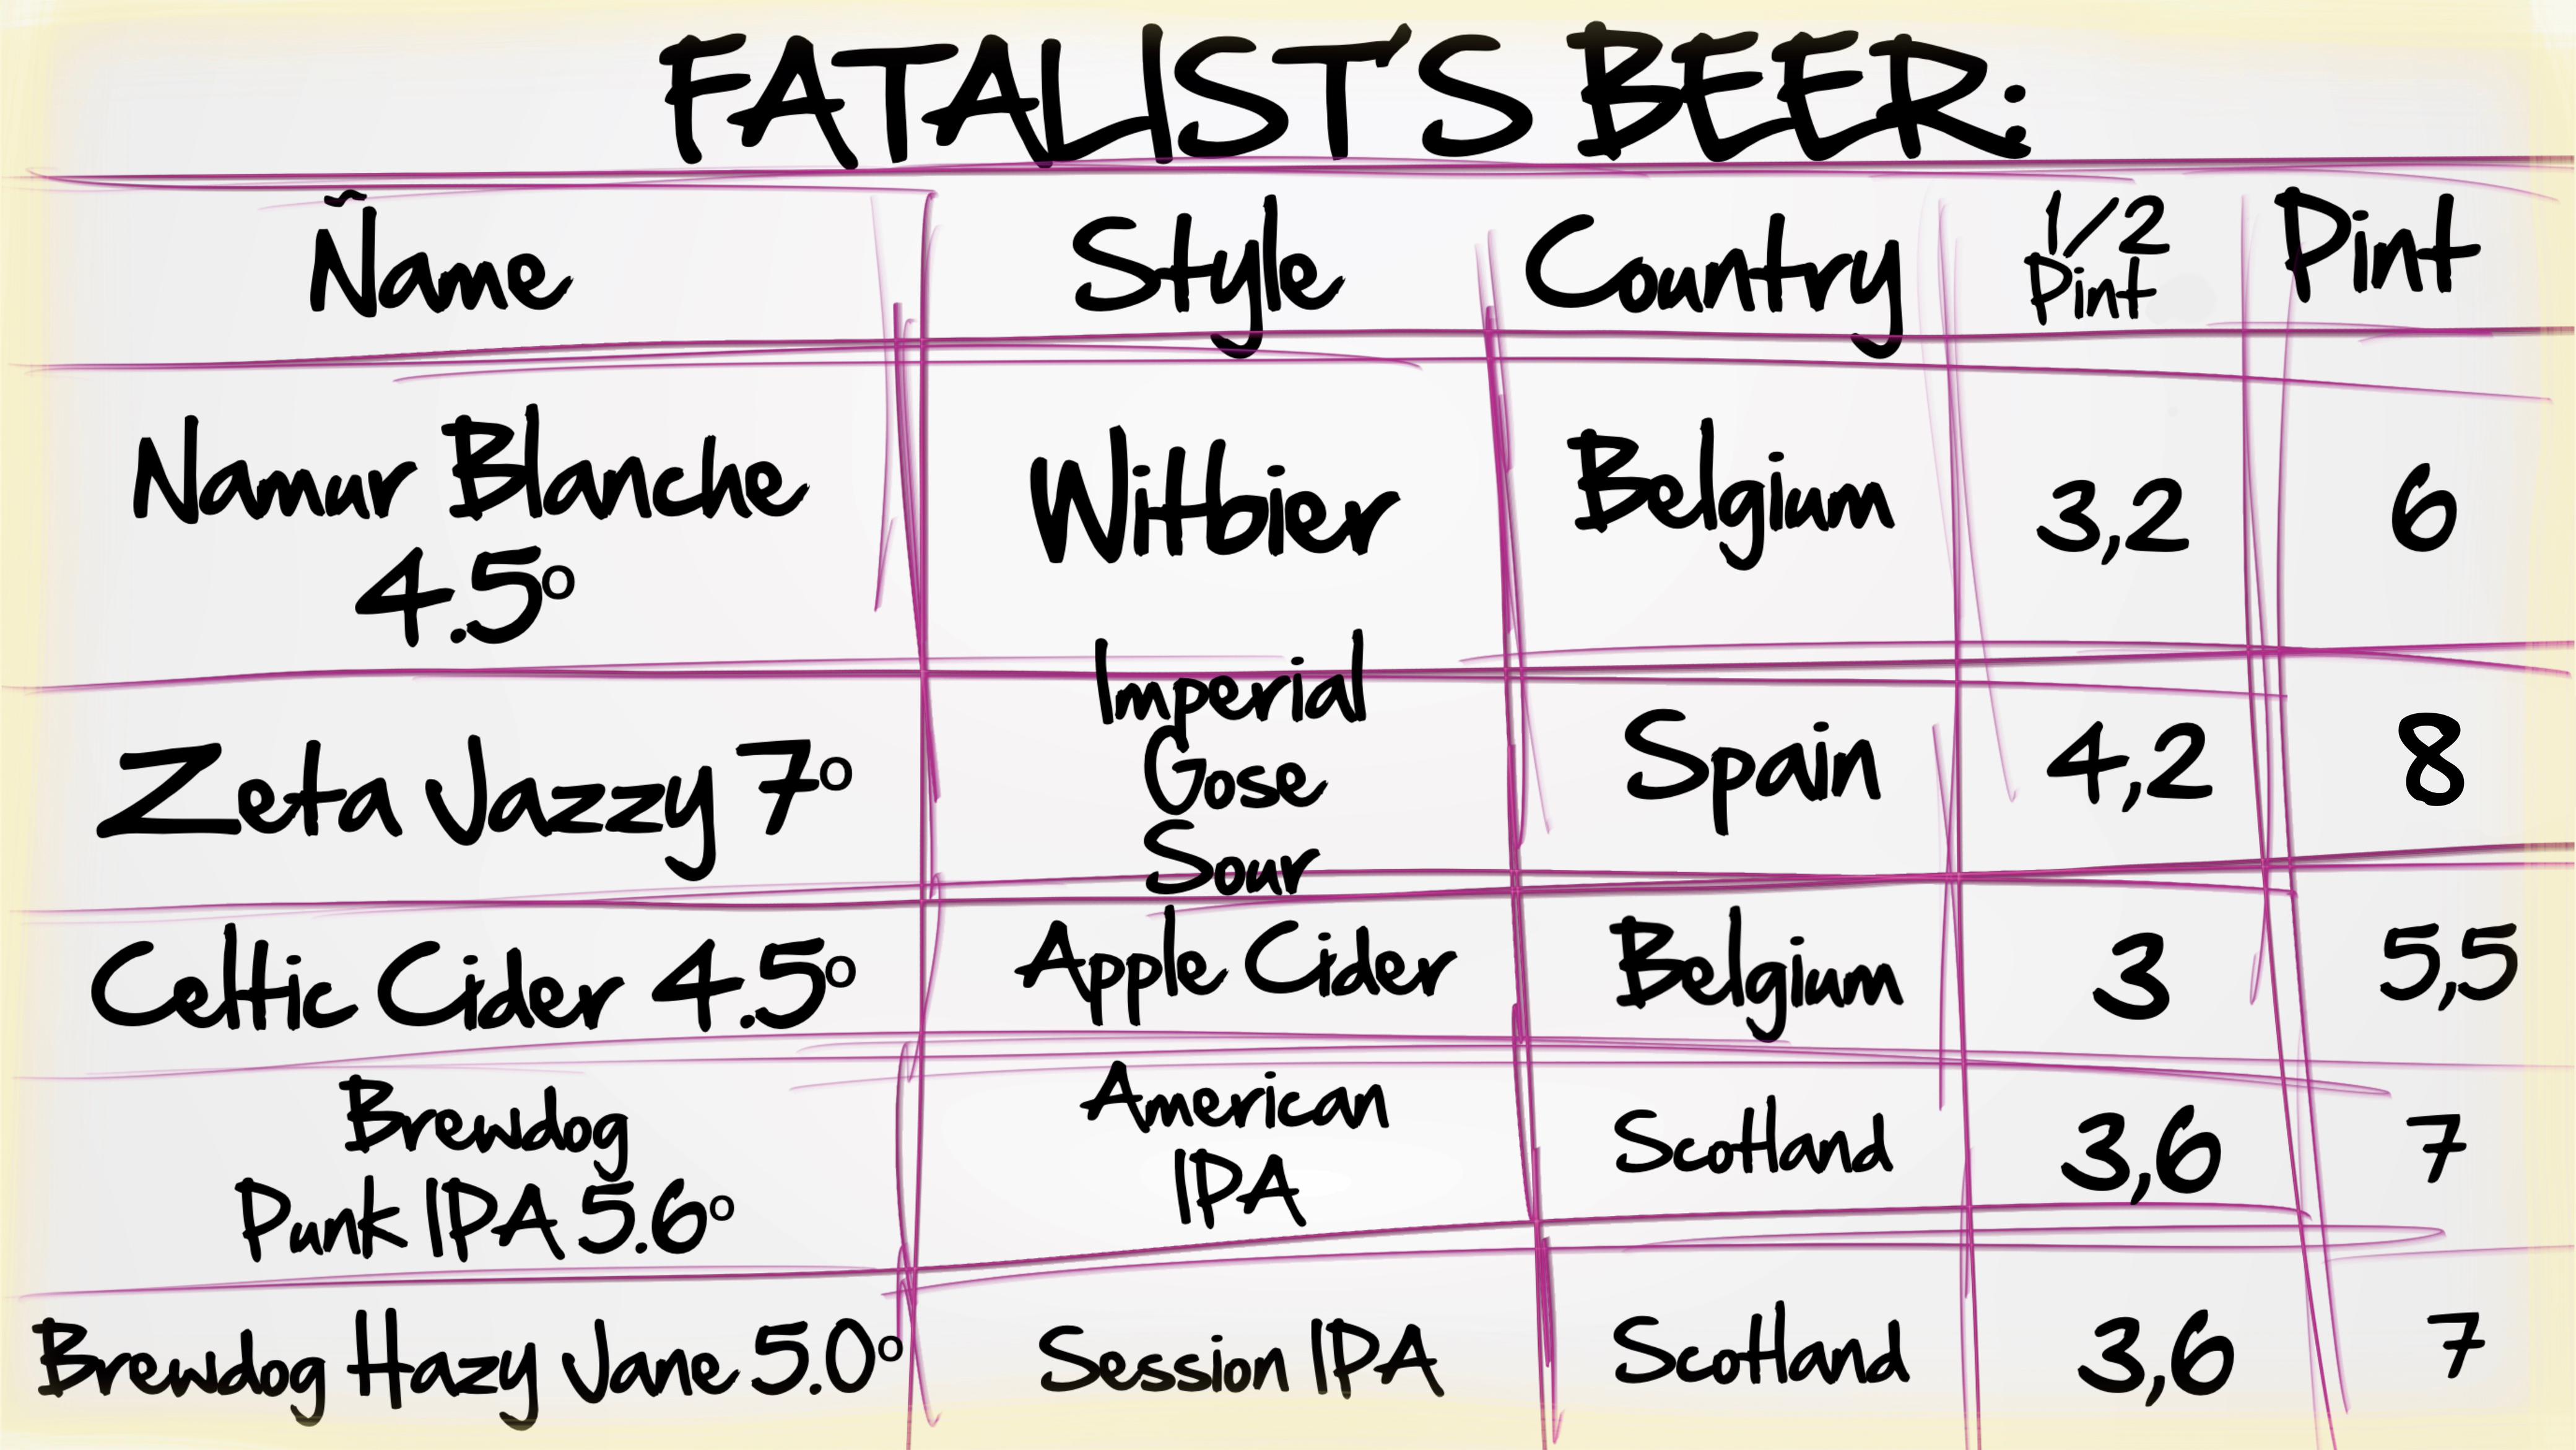 FATALIST'S BEER:
Ñame Style Country 1/2 Pint Pint
Namur Blanche
4.5º
Witbier Belgium 3,2 6
Zeta Jazzy 7º
Imperial
Gose
Sour
Spain 4,2 8
Celtic Cider 4.5º Apple Cider Belgium 3 5,5
Brewdog
Punk IPA 5.6º
American
IPA
Scotland 3,6 7
Brewdog Hazy Jane 5.0º Session IPA Scotland 3,6 7